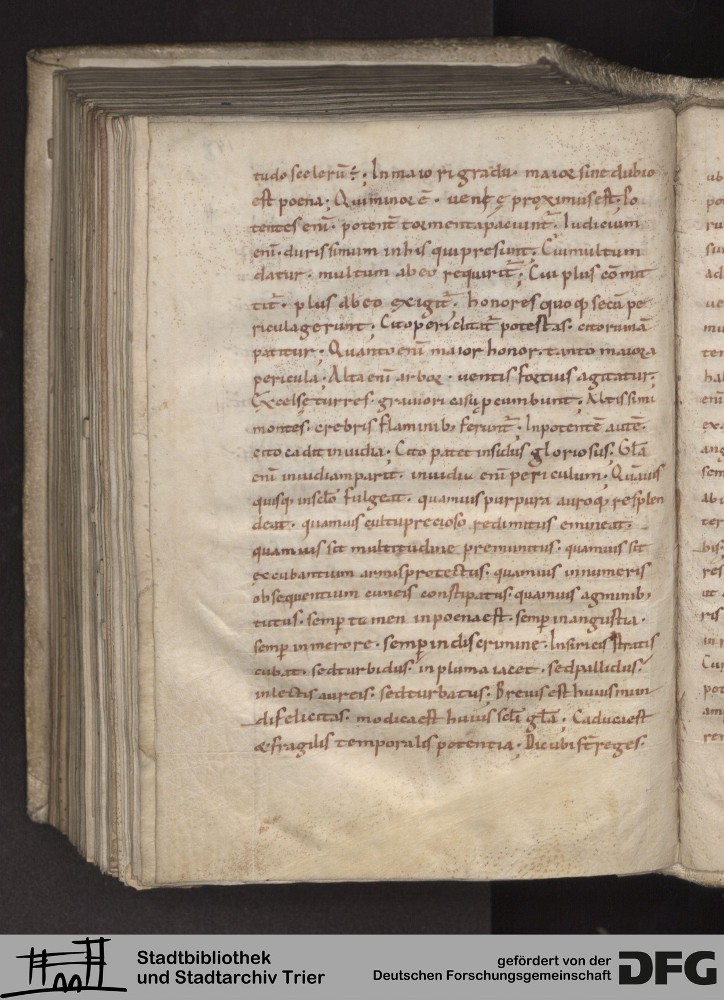 tudo scelerū; In maiori gradu· maior sine dubio
est poena; Qui minor ē· uen
proximus est; Po
tentes enī· potent̄ tormenta
; Iudicium
enī· durissimum in his qui presunt; Cui multum
datur· multum ab eo requirit̄; Cui plus cōmit
tit̄· plus ab eo exigit̄· honores quoq secū pe
ricula gerunt; Cito periclitat̄ potestas· cito ruinā
patitur; Quanto enī maior honor· tanto maiora
pericula; Alta enī arbor· uentis fortius agitatur;
Excelse turres· grauiori casu
; Altissimi
montes· crebris flaminib; feriunt̄; In potentē autē·
cito cadit inuidia; Cito patet insidiis gloriosus; Gl̄a
enī inuidiam parit· inuidia enī periculum; Quāuis
quisq· in scl̄o fulgeat· quamuis purpura auroq; resplen
deat· quamuis cultu precioso redimitus emineat·
quamuis sit multitudine premunitus· quamuis sit
excubantium armis protectus· quamuis innumeris
obsequentium cuneis constipatus· quamuis agminib;
tutus· semp̄ tamen in poena est· semp̄ in angustia·
semp̄ in merore· semp̄ in discrimine· In siricis stratis
cubat· sed turbidus· in pluma iacet· sed pallidus·
in lectis aureis· sed turbatus; Breuis est huius mun
di felicitas· modica est huius scl̄i gl̄a; Caduca est
& fragilis temporalis potentia; Dic ubi st̄ reges·
Stadtbibliothek
und Stadtarchiv Trier
gefördert von der
Deutschen Forschungsgemeinschaft
DFG